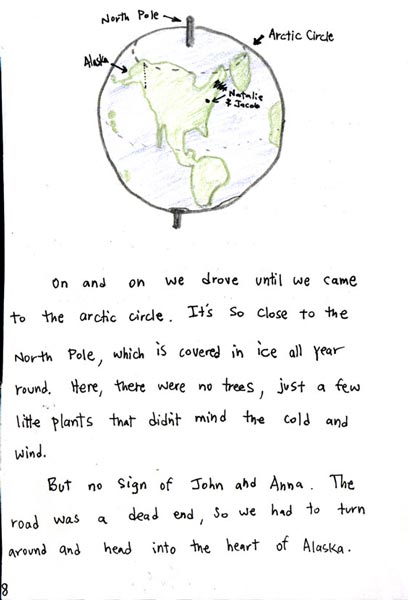 North Pole
Arctic Circle
Alaska
Natalie
& Jacob
On and on we drove until we came
to the arctic circle. It's so close to the
North Pole, which is covered in ice all year
round. Here, there were no trees, just a few
little plants that didn't mind the cold and
wind.
But no sign of John and Anna. The
road was a dead end, so we had to turn
around and head into the heart of Alaska.
8